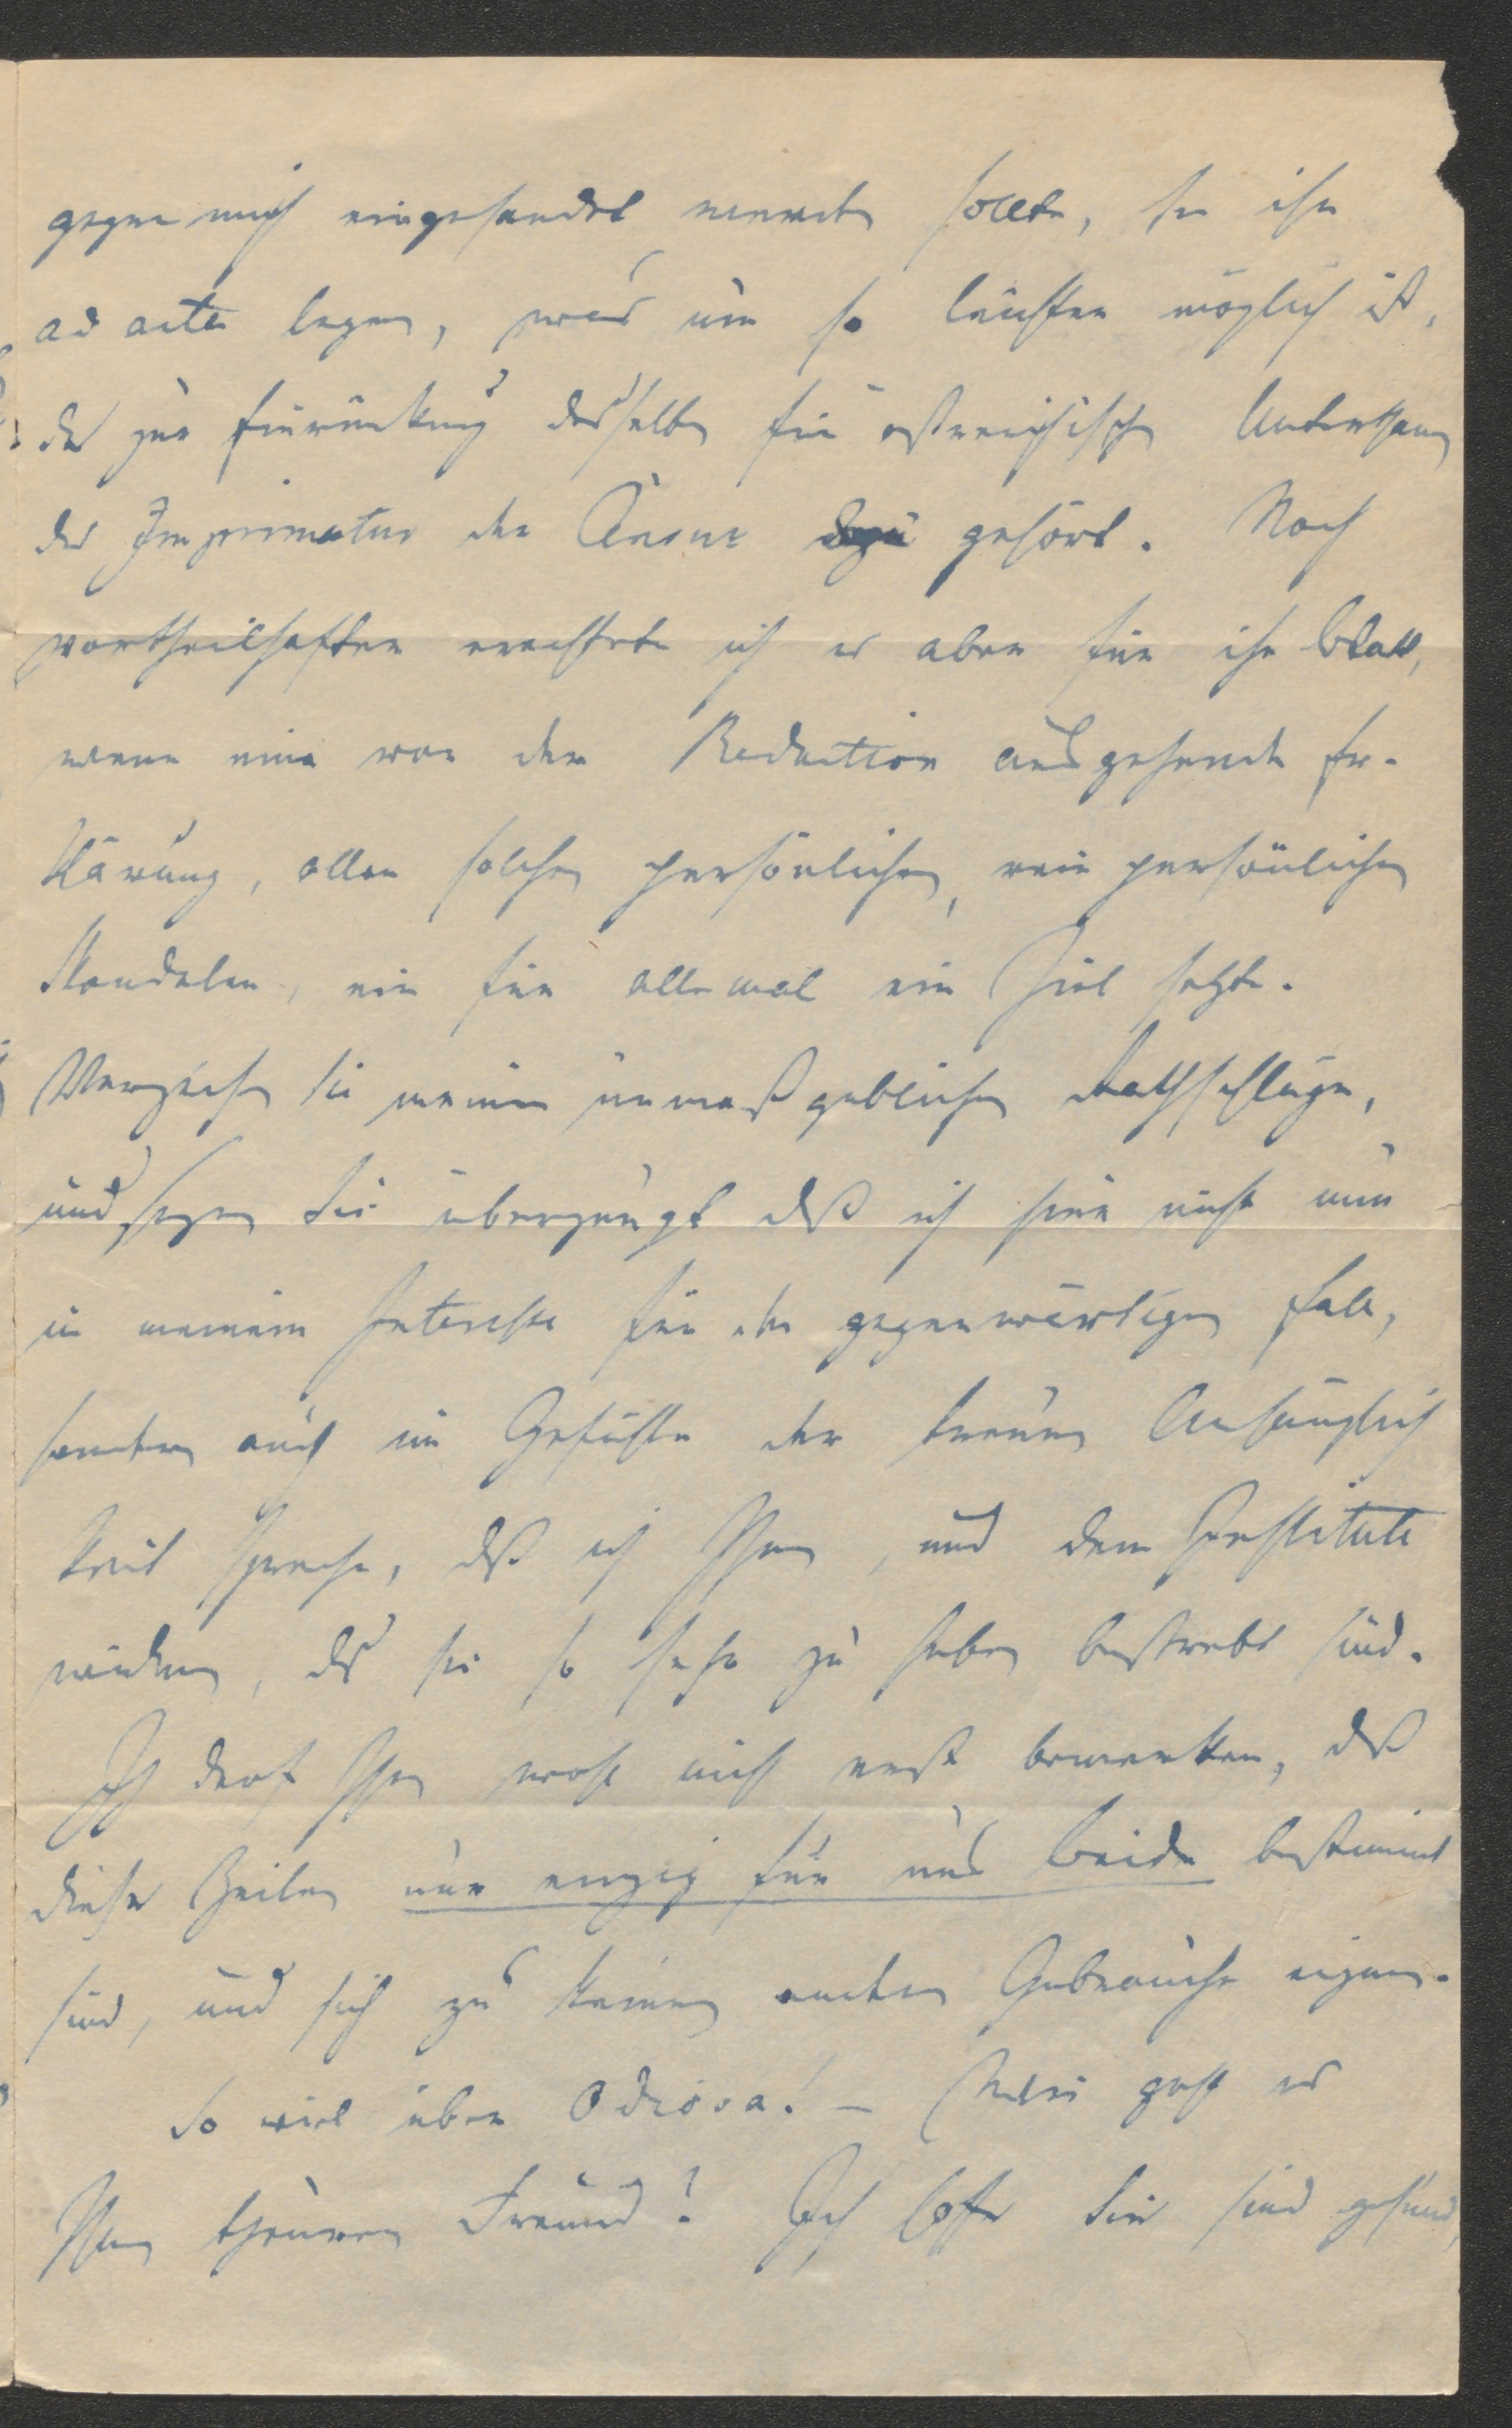 gegen mich eingesendet werden sollte, sie ihn
ad acta legen, was um so leichter möglich ist,
da zur Einrückung desselben für östreichische Unterthanen
das Imprimatur der Censur dazu gehört. Noch
vortheilhafter erachtete ich es aber für ihr Blatt,
wenn eine von der Redaction ausgehende Er-
klärung, allen solchen persönlichen, rein persönlichen
Skandalen, ein für allemal ein Ziel setzte.
Verzeihen Sie meine unmaßgeblichen Rathschläge,
und seyen Sie überzeugt daß ich hier nicht nur
in meinem Interesse für den gegenwärtigen Fall,
sondern auch im Gefühle der treuen Anhänglich
keit spreche, daß ich Ihnen, und dem Institute
widme, das sie so sehr zu heben bestrebt sind.
Ich darf Ihnen wohl nicht erst bemerken, daß
diese Zeilen nur einzig für uns beide bestimmt
sind, und sich zu keinem andern Gebrauche eignen.
So viel über Odiosa! – Wie geht es
Ihnen theurer Freund? Ich hoffe Sie sind gesund,